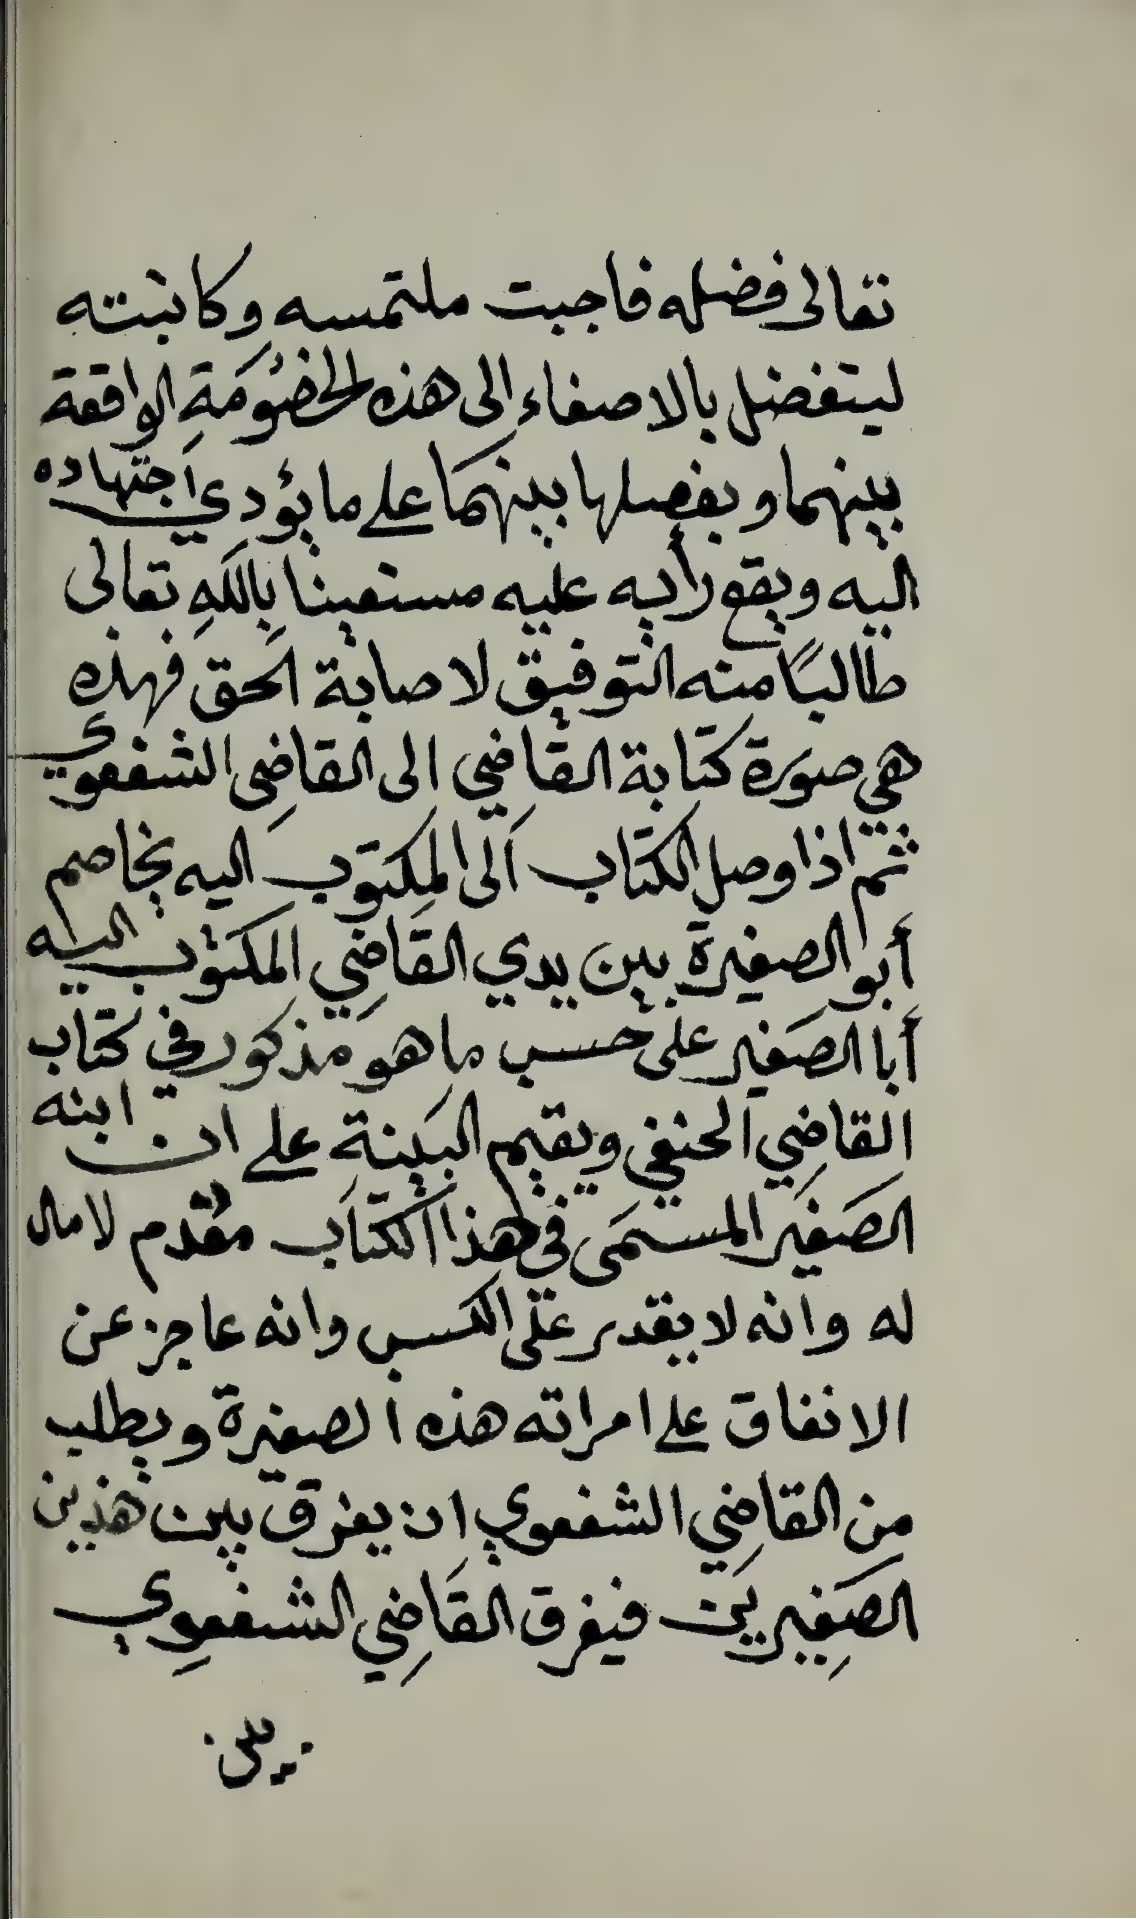 تعالى فضله فاجبت ملتمسه وكاتبته
ليتفضل بالاصغاء إلى هذه الخصُومَةِ الواقعة
بينهما ويفصلها بينهما على ما يؤدي اجتهاده
اليه ويقع رأيه عليه مستعينا باللهِ تعالى
طالبًا منه التوفيق لاصابة الحق فهذِه
هي صورَة كتابة القاضِي الى القاضِى الشفعوي
ثم اذا وصل الكتاب الى المكتوب اليه يخاصم
أبو الصغيرة بين يدي القاضِي المكتوب اليه
أبا الصَغير على حسب ما هو مَذكور في كتاب
القاضِي الحنفي ويقيم البَينة على ان ابنه
الصَغير المسَمى في هذا الكتاب مُعْدم لا مال
له وانه لا يقدر على الكسب وانه عاجز عن
الانفاق على امراته هذه الصغيرة ويطلب
من القاضِي الشفعوي ان يفرق بين هذين
الصَغِيرين فيفرق القَاضِي الشفعوِي
بين